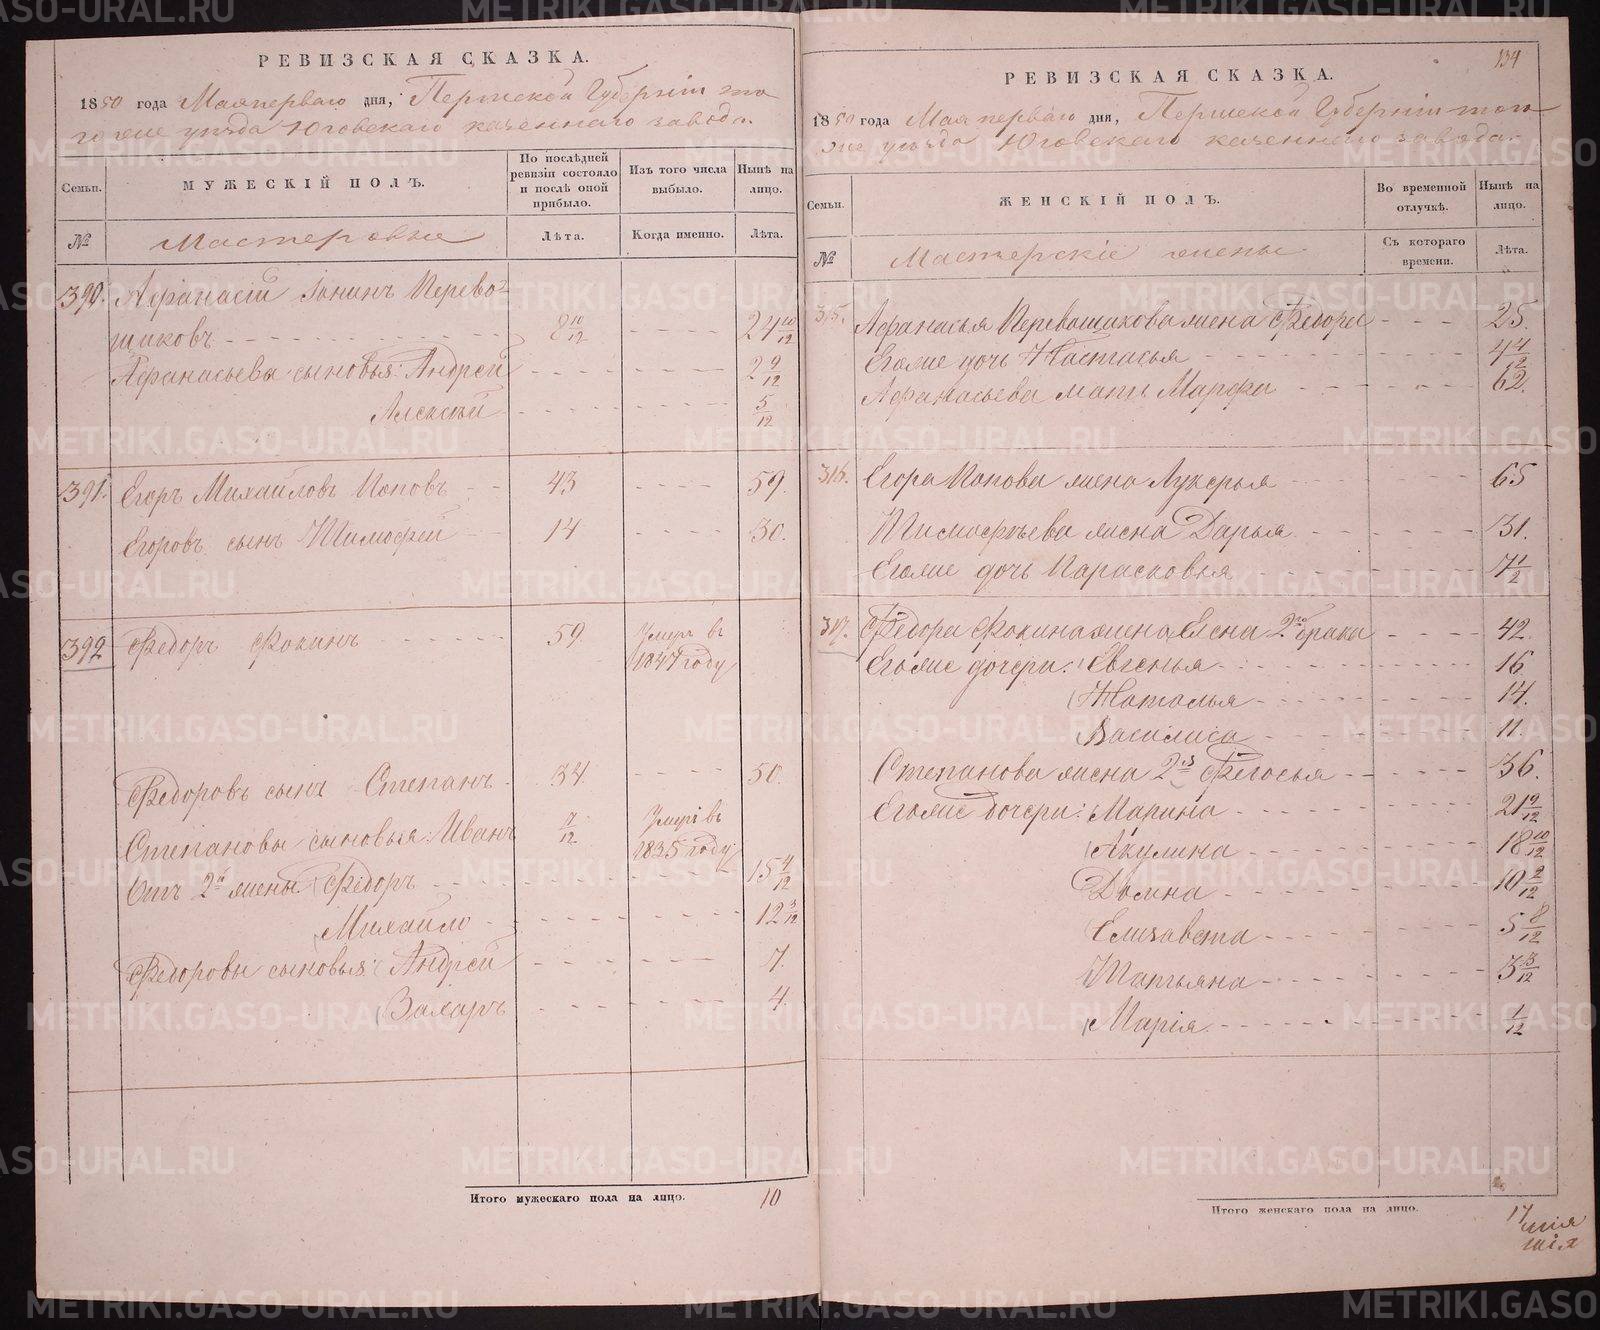 РЕВИЗСКАЯ СКАЗКА.
1850 года Мая перваго дня, Пермской Губерніи то
гоже уѣзда Юговскаго казеннаго завода.
Семьи.
МУЖЕСКІЙ ПОЛЪ.
По послѣдней ревизіи состояло и послѣ оной прибыло.
Изъ того числа выбыло.
Нынѣ на лицо.
№
Мастеровые
Лѣта.
Когда именно.
Лѣта.
390. Афанасій Перево-
щиковъ 8 10/12 24 10/12
Афанасьева сыновья: Андрей 2 9/12
Алексѣй 5/12
391. Егоръ Михайловъ Поповъ 43 59.
Егоровъ сынъ Тимофей 14 30.
392 Федоръ Фокинъ 59. Умеръ въ
1847 году
Федоровъ сынъ Степанъ 34. 50.
Степановы сыновья: Иванъ 7/12 Умеръ въ
1835 году
Отъ 2й жены Федоръ 15 4/12
Михайло 12 3/12
Федоровы сыновья: Андрей 7.
Захаръ 4.
Итого мужескаго пола на лицо. 10
134
РЕВИЗСКАЯ СКАЗКА.
1850 года Мая перваго дня, Пермской Губерніи того
же уѣзда Юговскаго казеннаго завода.
Семьи.
ЖЕНСКІЙ ПОЛЪ.
Во временной отлучкѣ.
Нынѣ на лицо.
№
Мастерскіе жены
Съ котораго времени.
Лѣта.
315. Афанасья Перевощикова жена Федора 25.
Егоже дочь Настасья 4 4/12
Афанасьева мать Марфа 62.
316. Егора Попова жена Лукерья 65
Тимофѣева жена Дарья 31.
Егоже дочь Парасковья 7 1/2
317. Федора Фокина жена Елена 2го брака 42.
Егоже дочери: Евгенья 16
Наталья 14.
Василиса 11.
Степанова жена 2я Федосья 36.
Егоже дочери: Марина 21 9/12
Акулина 18 10/12
Домна 10 2/12
Елизавета 5 8/12
Татьяна 3 3/12
Марія 1/12
Итого женскаго пола на лицо. 17
METRIKI.GASO-URAL.RU